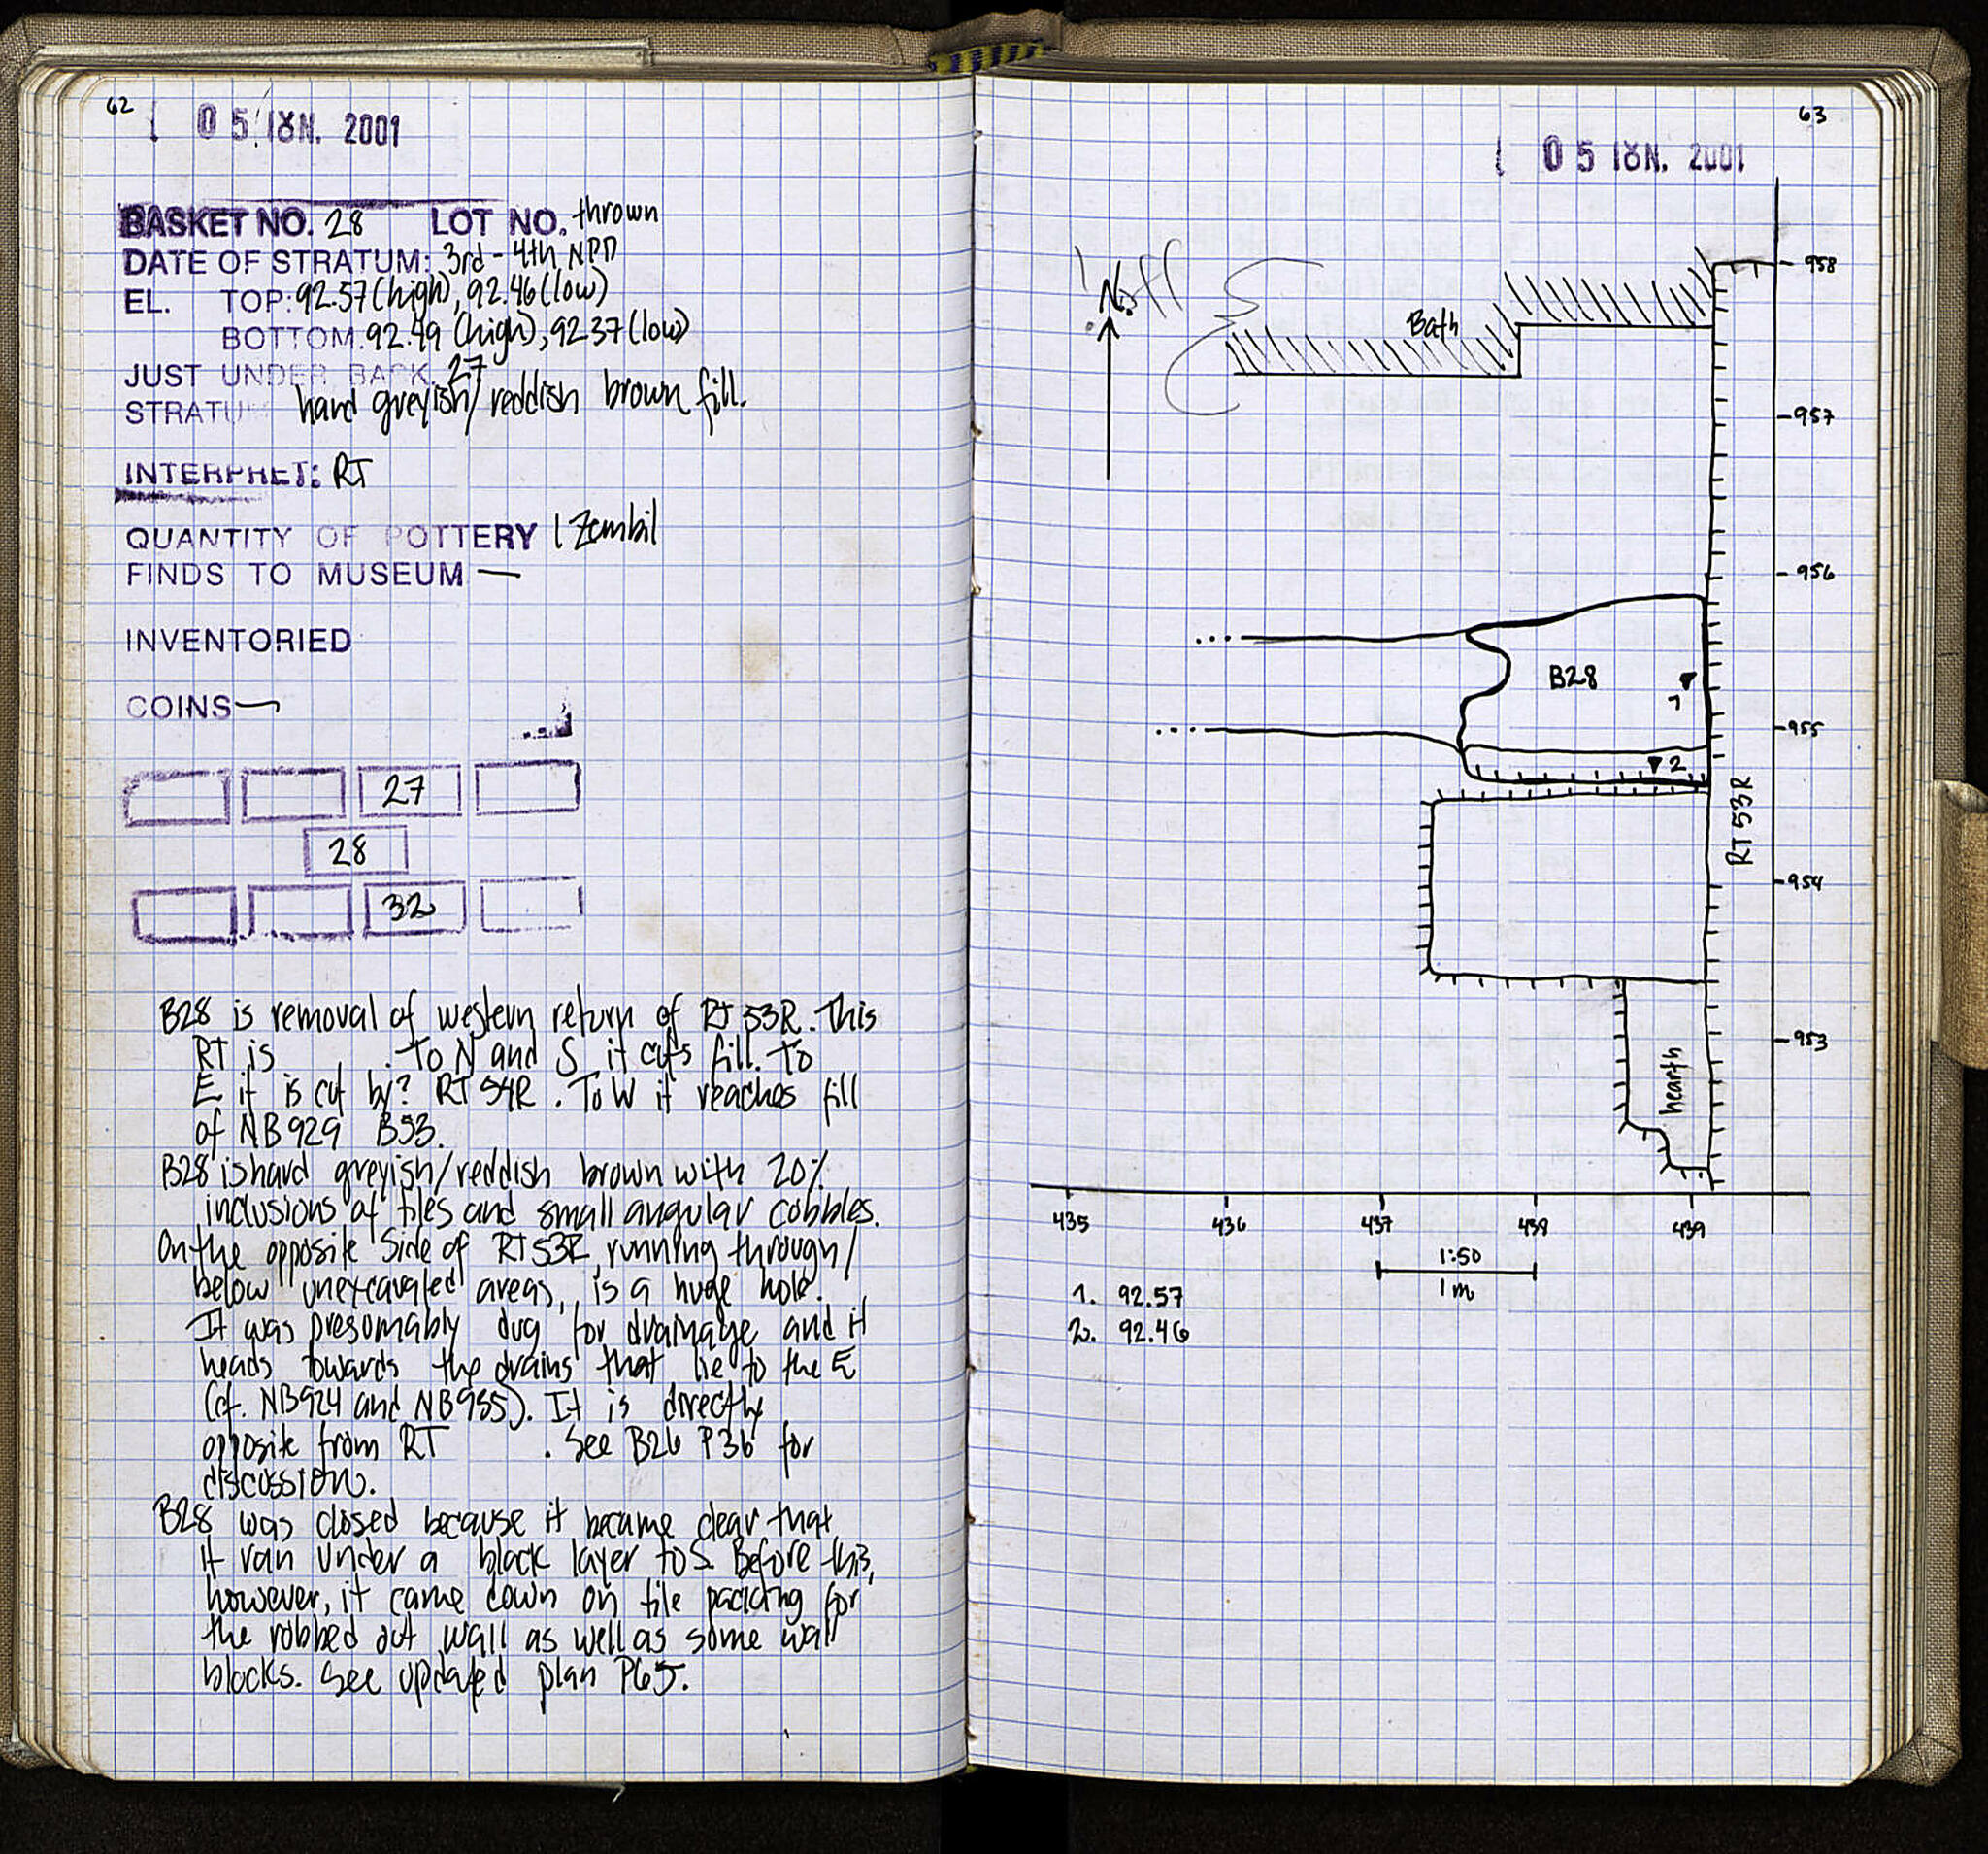 62
05 ΙΟΥΝ. 2001
BASKET NO. 28 LOT NO. thrown
DATE OF STRATUM: 3rd - 4th NPD
EL. TOP: 92.57 (high), 92.46 (low)
BOTTOM. 92.49 (high), 92.37 (low)
JUST UNDER BACK. 27
STRATUM hard greyish/ reddish brown fill.
INTERPRET: RT
QUANTITY OF POTTERY 1 Zembil
FINDS TO MUSEUM —
INVENTORIED
COINS —
27
28
32
B28 is removal of western return of RT 53R. This
RT is . To N and S it cuts fill. To
E it is cut by? RT 54R. To W it reaches fill
of NB929 B53.
B28 is hard greyish/reddish brown with 20%
inclusions of tiles and small angular cobbles.
On the opposite side of RT53R, running through/
below unexcavated areas, is a huge hole.
It was presomably dug for drainage and it
heads towards the drains that lie to the E
(cf. NB924 and NB935). It is directly
opposite from RT . See B26 P36 for
discussion.
B28 was closed because it became clear that
it ran under a black layer to S. Before this,
however, it came down on tile packing for
the robbed out wall as well as some wall
blocks. See updated plan P65.
63
05 ΙΟΥΝ. 2001
N.
Bath
958
957
956
B28
1
955
2
RT 53R
954
953
hearth
435 436 437 438 439
1:50
1 m
1. 92.57
2. 92.46